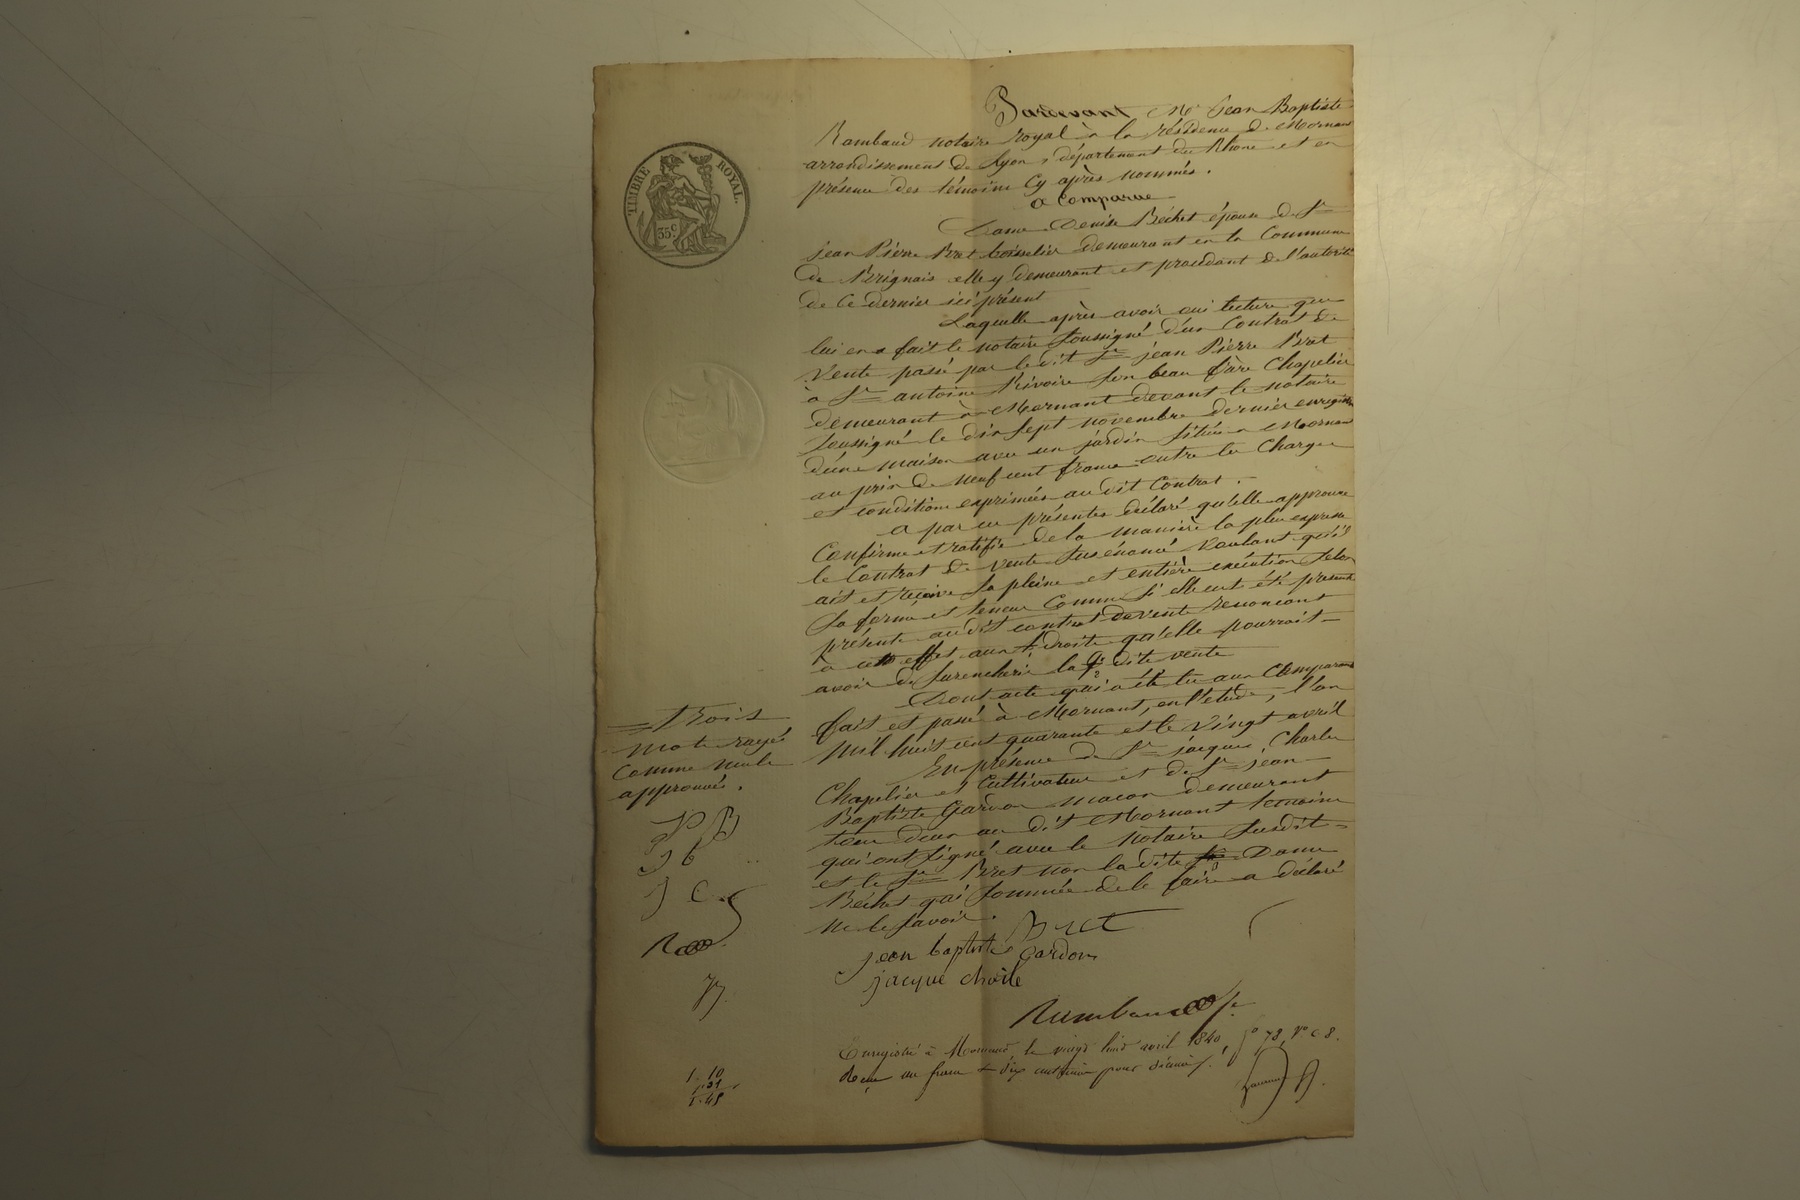 TIMBRE ROYAL.
35 c.
Pardevant Me Jean Baptiste
Rambaud notaire royal à la résidence de Mornant
arrondissement de Lyon, département du Rhone et en
présence des témoins Cy après nommés.
a Comparue
Dame Denise Béchet épouse de Sr
jean Pierre Bret boisselier demeurant en la Commune
de Brignais elle y demeurant et procédant de l'autorité
de Ce dernier ici présent
Laquelle après avoir oui lecture que
lui en a fait le notaire Soussigné d'un Contrat de
Vente passé par le dit Sr jean Pierre Bret
à Sr antoine Rivoire Son beau frère Chapelier
demeurant à Mornant devant le notaire
Soussigné le dix Sept novembre dernier enregistré
d'une maison avec un jardin Situés à Mornant
au prix de neuf cent francs outre les Charges
et conditions exprimées au dit Contrat.
a par ces présentes déclaré qu'elle approuve
Confirme et ratifie de la manière la plus expresse
le Contrat de Vente Susénoncé Voulant qu'il
ait et reçoive Sa pleine et entière exécution Selon
Sa forme et teneur Comme Si elle eut été présente
présente au dit contrat de vente renonçant
à cet effet aux droits qu'elle pourrait
avoir de Surenchérir la dite vente
Dont acte qui a été lu aux Comparants
fait et passé à Mornant, en l'etude, l'an
Mil huit cent quarante et le Vingt avril
En présence de Sr jacques Charles
Chapelier et Cultivateur et de Sr jean
Baptiste Gardon macon demeurant
tous deux au dit Mornant temoins
qui ont Signé avec le notaire Susdit
et le Sr Bret non la dite Dame
Béchet qui Sommée de le faire a déclaré
ne le Savoir.
trois
mots rayés
Comme nuls
approuvés.
J P B
J b
J C
Bret
jean baptiste gardon
jacque charle
Rambaud
Enregistré à Mornant, le vingt huit avril 1840, fo 78, Vo c 8.
Reçu un franc & dix centimes pour décime.
1. 10
35
1. 45